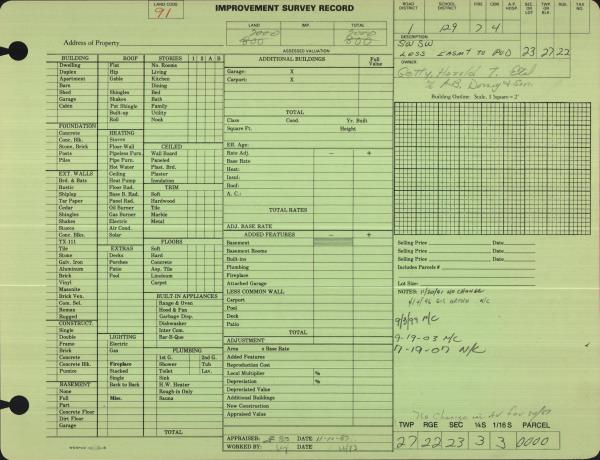 LAND CODE
91
IMPROVEMENT SURVEY RECORD
ROAD DISTRICT SCHOOL DISTRICT FIRE CEM A.F. HOSP. SEC. OR LOT TWP. OR BLK. RGE. TAX NO.
1 129 7 4
LAND IMP. TOTAL
2000 2000
800 800
Address of Property
ASSESSED VALUATION
DESCRIPTION:
SW SW
LESS EASMT TO PUD 23.27.22
OWNER:
Getty, Harold T. Etal
% A.B. Dorsey & Son
BUILDING ROOF STORIES 1 2 A B
Dwelling Flat No. Rooms
Duplex Hip Living
Apartment Gable Kitchen
Barn Dining
Shed Shingles Bed
Garage Shakes Bath
Cabin Pat Shingle Family
Built-up Utility
Roll Nook
FOUNDATION
Concrete HEATING
Conc. Blk. Stoves CEILED
Stone, Brick Floor-Wall Wall Board
Posts Pipeless Furn. Paneled
Piles Pipe Furn. Plast. Brd.
Hot Water Plaster
EXT. WALLS Ceiling Insulation
Brd. & Bats Heat Pump
Rustic Floor Rad. TRIM
Shiplap Base B. Rad. Soft
Tar Paper Panel Rad. Hardwood
Cedar Oil Burner Tile
Shingles Gas Burner Marble
Shakes Electric Metal
Stucco Air Cond.
Conc. Blks. Solar
TX-111 FLOORS
Tile EXTRAS Soft
Stone Decks Hard
Galv. Iron Porches Concrete
Aluminum Patio Asp. Tile
Brick Pool Linoleum
Vinyl Carpet
Masonite
Brick Ven. BUILT-IN APPLIANCES
Com. Sel. Range & Oven
Roman Hood & Fan
Rugged Garbage Disp.
CONSTRUCT. Dishwasher
Single Inter Com.
Double LIGHTING Bar-B-Que
Frame Electric
Brick Gas PLUMBING
Concrete 1st G. 2nd G.
Concrete Blk. Fireplace Shower Tub
Pumice Stacked Toilet Lav.
Single Sink
BASEMENT Back to Back H.W. Heater
None Rough-in Only
Full Misc. Sauna
Part
Concrete Floor
Dirt Floor
Garage TOTAL
ADDITIONAL BUILDINGS Full Value
Garage: X
Carport: X
TOTAL
Class Cond. Yr. Built
Square Ft. Height
Eff. Age:
Rate Adj. – +
Base Rate
Heat:
Insul:
Roof:
A. C.:
TOTAL RATES
ADJ. BASE RATE
ADDED FEATURES – +
Basement
Basement Rooms
Built-ins
Plumbing
Fireplace
Attached Garage
LESS COMMON WALL
Carport
Pool
Deck
Patio
TOTAL
ADJUSTMENT
Area x Base Rate
Added Features
Reproduction Cost
Local Multiplier %
Depreciation %
Depreciation Value
Additional Buildings
New Construction
Appraised Value
APPRAISER:
WORKED BY:
Building Outline: Scale, 1 Square = 2'
Selling Price Date
Selling Price Date
Selling Price Date
Includes Parcels #
Lot Size:
NOTES: 11/20/91 NO CHANGE
N/C
9/3/99 N/C
9-19-03 N/C
7-19-07 N/C
No Change in AV for
TWP RGE SEC ¼S 1/16 S PARCEL
27 22 23 3 3 0000